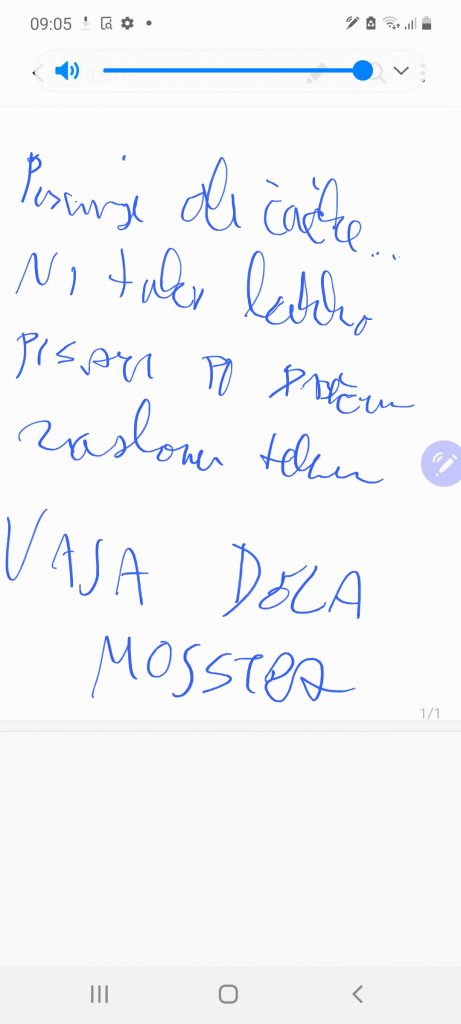 09:05
Pisanje ali čačke..
Ni tako lahko
pisati po
zaslonu
VAJA DELA
MOJSTRA
1/1